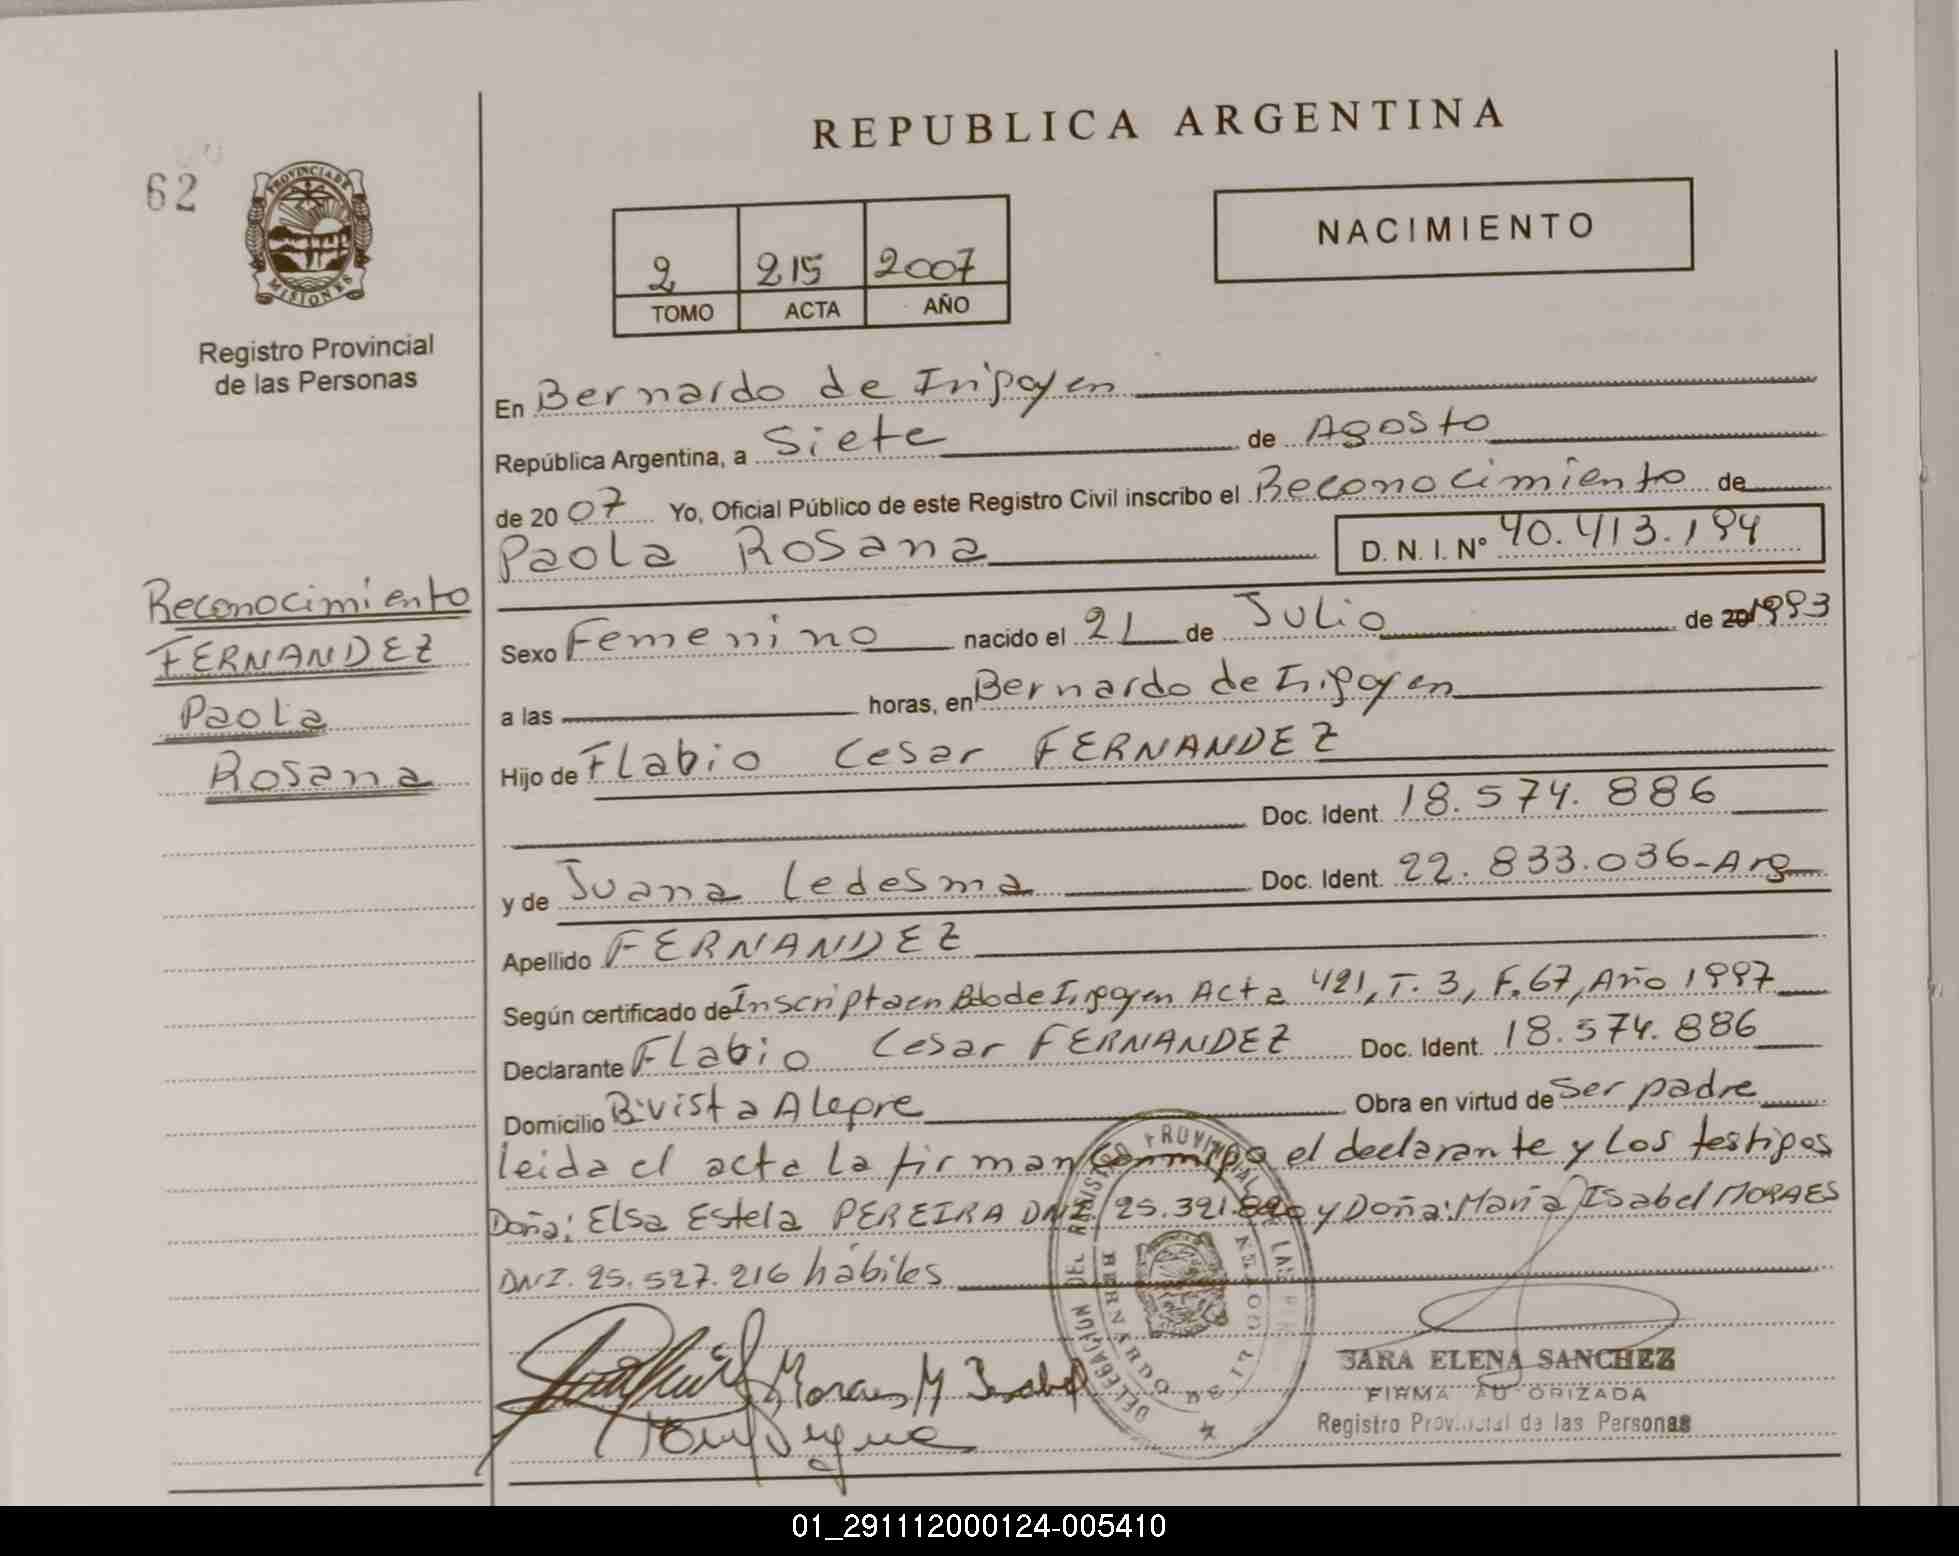 REPUBLICA ARGENTINA
62
PROVINCIA DE
MISIONES
Registro Provincial
de las Personas
2 215 2007
TOMO ACTA AÑO
NACIMIENTO
En Bernardo de Irigoyen
República Argentina, a Siete de Agosto
de 2007 Yo, Oficial Público de este Registro Civil inscribo el Reconocimiento de
Paola Rosana D. N. I. Nº 40.413.194
Reconocimiento
FERNANDEZ
Paola
Rosana
Sexo Femenino nacido el 21 de Julio de 20 1993
a las horas, en Bernardo de Irigoyen
Hijo de Flabio Cesar FERNANDEZ
Doc. Ident. 18.574.886
y de Juana Ledesma Doc. Ident. 22.833.036-Arg
Apellido FERNANDEZ
Según certificado de Inscripta en Bdo de Irigoyen Acta 421, T. 3, F. 67, Año 1997
Declarante Flabio Cesar FERNANDEZ Doc. Ident. 18.574.886
Domicilio B: Vista Alegre Obra en virtud de ser padre
leida el acta la firman conmigo el declarante y los testigos
Doña: Elsa Estela PEREIRA DNI. 25.321. y Doña: Maria Isabel MORAES
DNI. 25.527.216 hábiles
DELEGACIÓN DEL REGISTRO PROVINCIAL DE LAS
BERNARDO DE IRIGOYEN
Moraes M Isabel
SARA ELENA SANCHEZ
FIRMA AUTORIZADA
Registro Provincial de las Personas
01_291112000124-005410